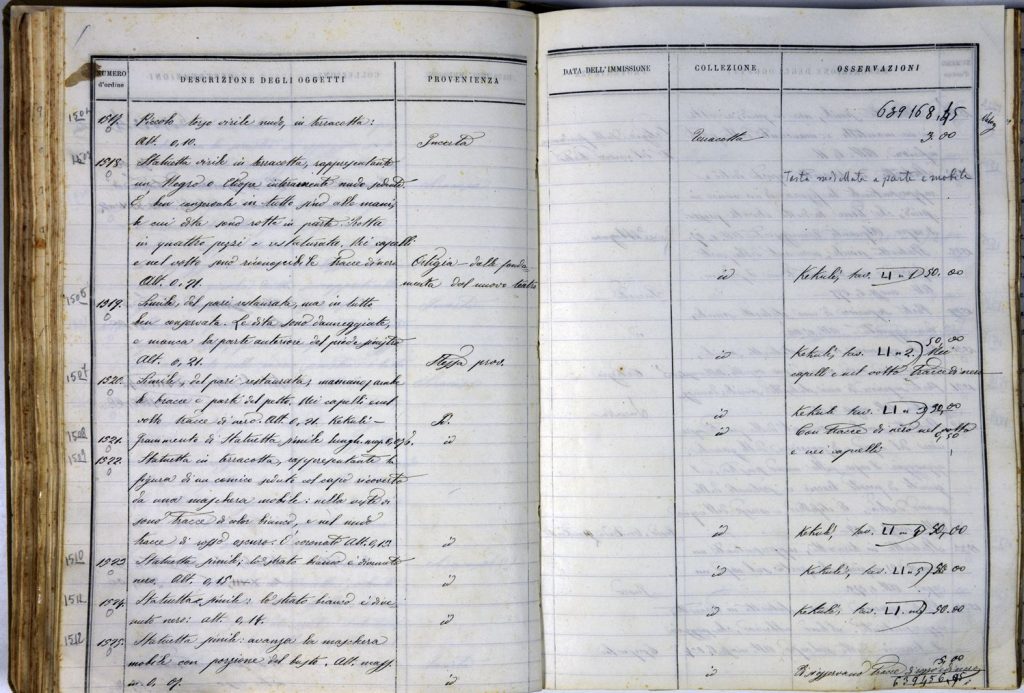 NUMERO d'ordine
DESCRIZIONE DEGLI OGGETTI
PROVENIENZA
1517.
Piccolo torso virile nudo, in terracotta:
Alt. 0,10.
Incerta
1518.
Statuetta virile in terracotta, rappresentante
un Negro o Etiope interamente nudo seduto.
È ben conservata in tutto,
le cui dita sono rotte in parte. Rotta
in quattro pezzi e restaurata. Nei capelli
e nel volto sono riconoscibili tracce di nero
Ortigia – dalle fonda-
Alt. 0,21.
menta del nuovo teatro
1505
1519.
Simile, del pari restaurata, ma in tutto
ben conservata. Le dita sono danneggiate,
e manca la parte anteriore del piede sinistro
Alt. 0,21.
Stessa prov.
1507
1520.
Simile, del pari restaurata; mancano ambe
le braccia e parte del petto. Nei capelli e nel
volto tracce di nero. Alt. 0,21. Kekulé –
1508
1521.
Frammento di Statuetta simile
id
1509
1522.
Statuetta in terracotta, rappresentante la
figura di un comico seduto col capo ricoverto
da una maschera mobile: nella veste vi
sono tracce di color bianco, e nel nudo
tracce di rosso oscuro. È coronato Alt. 0,13
id
1510
1523
Statuetta simile; lo strato bianco è divenuto
nero. Alt. 0,15
id
1511
1524.
Statuetta simile: lo strato bianco è dive
nuto nero: Alt. 0,14.
id
1512
1525.
Statuetta simile: avanza la maschera
mobile con porzione del busto. Alt. mass.
id
DATA DELL'IMMISSIONE
COLLEZIONE
OSSERVAZIONI
639168,45
Terracotta
3.00
Testa modellata a parte e mobile
id
Kekulé, tav. LI n 1) 50.00
50.00
id
Kekulé, tav. LI n 2. Nei
capelli e nel volto tracce di nero
id
Kekulé tav. LI n 3) 50,00
id
Con tracce di nero nel volto
0,50
e nei capelli
id
Kekulé, tav. LI n 4) 50,00
id
Kekulé, tav. LI n 5) 50.00
id
Kekulé, tav. LI 50.00
id
639456,95